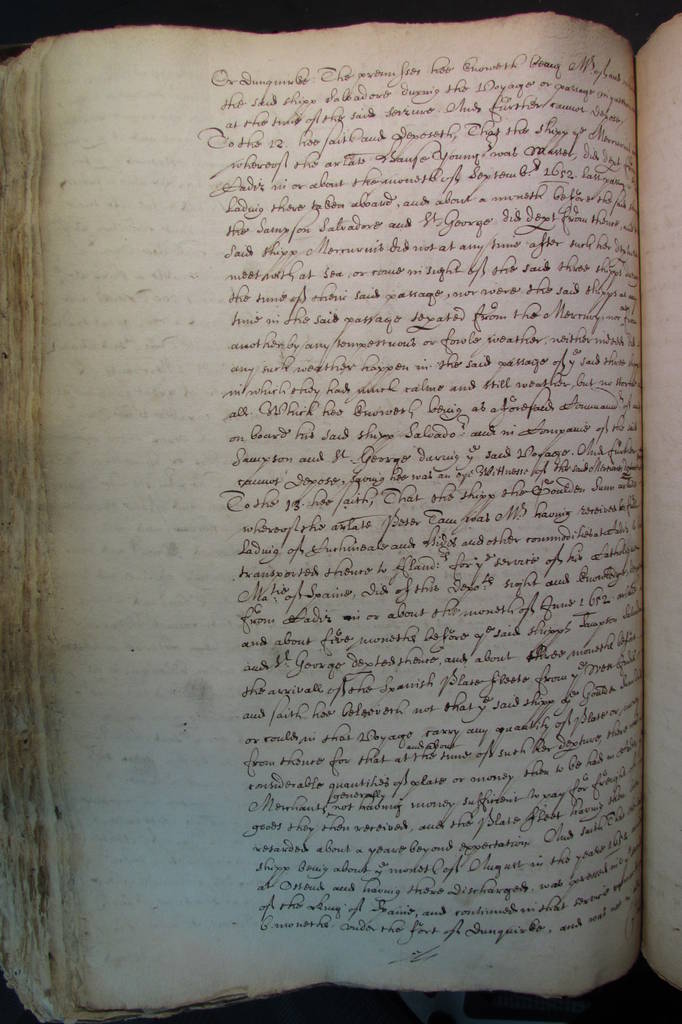 Or dunquirke. The premisses hee knoweth being Mr. of and
the said shipp Salvadore during the Voyage or passage in question
at the time of the said seizure. And further cannot depose.
To the 12. hee saith and deposeth, That the shipp ye Mercurius
whereof the arlate was Master, did dept
Cadiz in or about the moneth of Septembr. 1652. last past
Lading there taken aboard, and about a moneth before the said
the Sampson Salvadore and St. George did dept from thence, and
said shipp Mercurius did not at any time after such her
meet with at sea, or come in sight of the said three shipps
the time of their said passage, nor were the said shipps at any
time in the said passage sepated from the Mercury, nor from
another by any tempestuous or fowle weather, neither indeed did
any such weather happen in the said passage of ye said three shipps
in which they had much calme and still weather, but no storme
all. Which hee knoweth being as aforesaid Commandr. of and
on board his said shipp Salvador and in Companie of the said
Sampson and St. George during ye said Voyage. And further
cannot depose, saving hee was an eye Wittnesse of the said Mercurius
To the 13. hee saith, That the shipp the Goulden Sunn
whereof the arlate Peter Tam was Mr. having received
Lading of Cuchineale and Hides and other commodities at Cadiz to be
transported thence to Fland.rs for ye service of his Catholique
Matie. of Spaine, did of this depots. sight and knowledge
from Cadiz in or about the moneth of June 1652
and about five moneths before ye said shipps Sampson Salvadore
and St. George depted thence, and about three moneths before
the arrivall of the Spanish Plate fleete from ye West
and saith hee beleeveth not that ye said shipp ye Goulden Sunn
or could in that Voyage carry any quantity of Plate or
from thence for that at and about the time of such her depture, there
considerable quantities of plate or money then to be had in
Merchants generally not having money sufficient to pay for freight of
goods they then received, and the Plate fleet having then
retarded about a yeare beyond expectation. And saith That the
shipp being about ye moneth of August in the yeare 1652
at Ostend and having there discharged, was pressed into ye
of the King of Spaine, and continued in that service
6. moneths under the fort of Dunquirke, and was